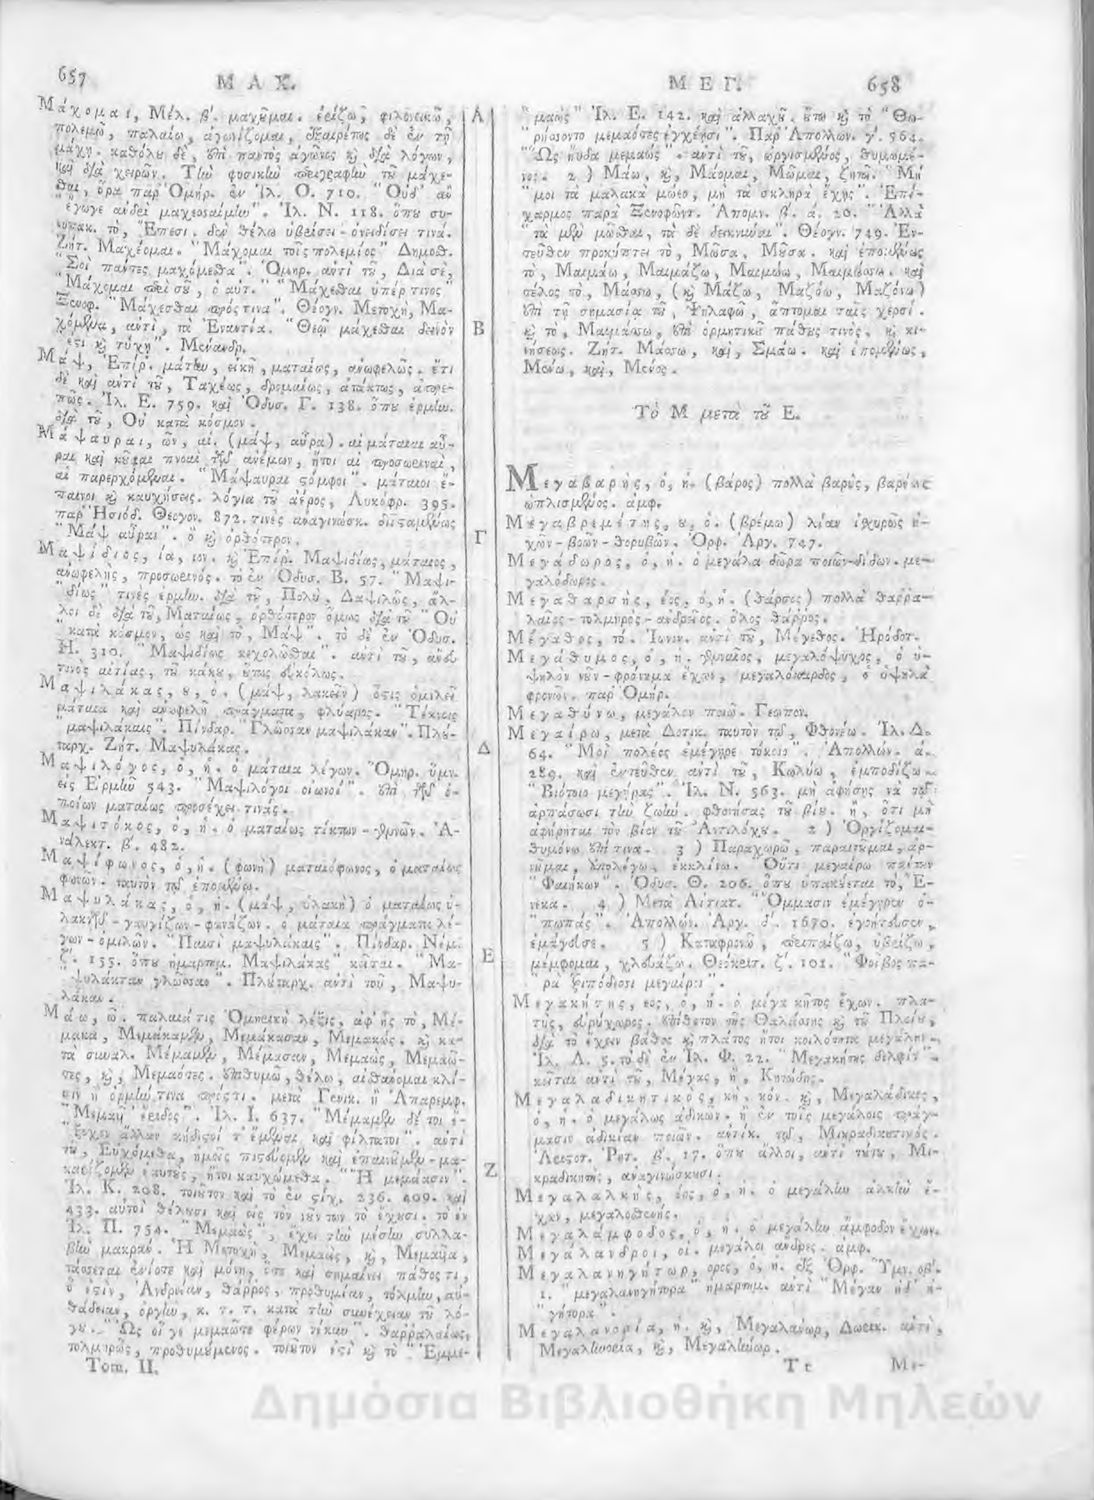 657 ΜΑΧ.
Μάχομαι, Μέλ. β΄. μαχοῦμαι. ἐρίζω, φιλονεικῶ,
πολεμῶ, παλαίω, ἀγωνίζομαι, ἐξαιρέτως δὲ ἐν τῇ
μάχῃ. καθόλου δὲ, ἐπὶ παντὸς ἀγῶνος καὶ διὰ λόγων,
καὶ διὰ χειρῶν. Τὴν φυσικὴν περιγραφὴν τοῦ μάχε-
σθαι, ὅρα παρ' Ὁμήρ. ἐν Ἰλ. Ο. 710. "Οὐδ' αὖ
"ἔγωγε
Ζήτ. Μαχέομαι. "Μάχομαι τοῖς πολεμίοις" Δημοσθ.
"Σοὶ πάντες μαχόμεσθα". Ὁμήρ. ἀντὶ τοῦ, Διὰ σέ,
"Μάχομαι περὶ σοῦ, ὁ αὐτ." "Μάχεσθαι ὑπέρ τινος"
Ξενοφ. "Μάχεσθαι πρός τινα". Θέογν. Μετοχὴ, Μα-
χόμενα, ἀντὶ, τὰ Ἐναντία. "Θεῷ μάχεσθαι δεινόν
"ἐστι καὶ τύχῃ". Μενάνδρ.
Μάψ, Ἐπίρ. μάτην, εἰκῆ, ματαίως, ἀνωφελῶς. ἔτι
δὲ καὶ ἀντὶ τοῦ, Ταχέως, δρομαίως, ἀτάκτως, ἀπρε-
πῶς. Ἰλ. Ε. 759. καὶ Ὀδυσ. Γ. 138. ὅπου ἑρμην.
διὰ τοῦ, Οὐ κατὰ κόσμον.
Μάψαυραι, ῶν, αἱ. (μάψ, αὔρα). αἱ μάταιαι αὖ-
ραι καὶ κοῦφαι πνοαὶ τῶν ἀνέμων, ἤτοι αἱ προσωριναὶ,
αἱ παρερχόμεναι. "Μάψαυραι στόμφοι". μάταιοι ἔ-
παινοι καὶ καυχήσεις. λόγια τοῦ ἀέρος, Λυκόφρ. 395.
παρ' Ἡσιόδ. Θεογον. 872. τινὲς ἀναγινώσκ. διϊσταμένως
"Μὰψ αὖραι". ὃ καὶ ὀρθότερον.
Μαψίδιος, ία, ιον. καὶ Ἐπίρ. Μαψιδίως, μάταιος,
ἀνωφελὴς, προσωρινός. τὸ ἐν Ὀδυσ. Β. 57. "Μαψι-
"δίως" τινὲς ἑρμην. διὰ τοῦ, Πολύ, Δαψιλῶς, ἄλ-
λοι δὲ διὰ τοῦ, Ματαίως, ὀρθότερον ὅμως διὰ τοῦ "Οὐ
"κατὰ κόσμον, ὡς καὶ τὸ, Μάψ". τὸ δὲ ἐν Ὀδυσ.
Η. 310. "Μαψιδίως κεχολῶσθαι". ἀντὶ τοῦ, ἄνευ
τινὸς αἰτίας, τοῦ κακοῦ, οὕτως εὐκόλως.
Μαψιλάκας, ου, ὁ. (μάψ, λακεῖν) ὅστις ὁμιλεῖ
μάταια καὶ ἀνωφελῆ πράγματα, φλύαρος.
"μαψιλάκαις". Πίνδαρ. "Γλῶσσαν μαψιλάκαν". Πλού-
ταρχ. Ζήτ. Μαψυλάκας.
Μαψιλόγος, ὁ, ἡ. ὁ μάταια λέγων. Ὁμήρ. ὕμν.
εἰς Ἑρμῆν 543. "Μαψιλόγοι οἰωνοί". ἐπὶ τῶν ὁ-
ποίων ματαίως προσέχει τινάς.
Μαψιτόκος, ὁ, ἡ. ὁ ματαίως τίκτων - γεννῶν. Ἀ-
νάλεκτ. β΄. 482.
Μαψίφωνος, ὁ, ἡ. (φωνὴ) ματαιόφωνος, ὁ ματαίως
φωνῶν. ταυτὸν τῷ ἑπομένῳ.
Μαψυλάκας, ὁ, ἡ. (μάψ, ὑλακὴ) ὁ ματαίως ὑ-
λακτῶν - γαυγίζων - φωνάζων. ὁ μάταια πράγματα λέ-
γων - ὁμιλῶν. "Παῦσι μαψυλάκαις". Πίνδαρ. Νεμ.
ζ΄. 155. ὅπου ἡμαρτημ. Μαψιλάκας" κεῖται. "Μα-
"ψυλάκταν γλῶσσαν". Πλούταρχ. ἀντὶ τοῦ, Μαψυ-
λάκαν.
Μάω, ῶ. παλαιά τις Ὁμηρικὴ λέξις, ἀφ' ἧς τὸ, Μέ-
μακα, Μεμάκαμεν, Μεμάκασαν, Μεμακώς. καὶ κα-
τὰ συναλ. Μέμαμεν, Μέμασαν, Μεμαὼς, Μεμαῶ-
τες, καὶ, Μεμαότες. ἐπιθυμῶ, θέλω, αἰσθάνομαι κλί-
σιν ἢ ὁρμήν τινα πρός τι. μετὰ Γενικ. ἢ Ἀπαρεμφ.
Ἰλ. Ι. 637. "Μέμαμεν δέ τοι ἔ-
"ξοχον ἄλλων κήδιστοί τ' ἔμεναι καὶ φίλτατοι". ἀντὶ
τοῦ, Εὐχόμεθα,
Ἰλ. Κ. 208. τοιοῦτον καὶ τὸ ἐν στίχ. 236. 409. καὶ
433.
Ἰλ. Π. 754. "Μεμαὼς", ἔχει τὴν μέσην συλλα-
βὴν μακράν. Ἡ Μετοχὴ, Μεμαὼς, καὶ, Μεμαῦα,
τάσσεται ἐνίοτε καὶ μόνη, ὅτε καὶ σημαίνει πάθος τι,
ὅ ἐστιν, Ἀνδρείαν, θάρρος, προθυμίαν, τόλμην, αὐ-
θάδειαν, ὀργὴν, κ. τ. τ. κατὰ τὴν συνέχειαν τοῦ λό-
γου. "Ὣς οἵ γε μεμαῶτε φέρον νέκυν". θαρραλαίως,
τολμηρῶς, προθυμούμενος. τοιοῦτόν ἐστι καὶ τὸ "Ἐμμε-
Tom. II.
Α
Β
Γ
Δ
Ε
Ζ
ΜΕΓ. 658
"μαώς" Ἰλ. Ε. 142. καὶ ἀλλαχοῦ. οὕτω καὶ τὸ "Θω-
"ρήσσοντο μεμαότες ἐγχέῃσι". Παρ' Ἀπολλων. γ΄. 564.
"Ὣς ηὔδα μεμαώς". ἀντὶ τοῦ, ὠργισμένος, θυμωμέ-
νος. 2) Μάω, καὶ, Μάομαι, Μῶμαι, ζητῶ. "Μή
"μοι τὰ μαλακὰ μώεο, μὴ τὰ σκληρὰ ἔχῃς". Ἐπί-
χαρμος παρὰ Ξενοφῶντ. Ἀπομν. β΄. α. 20. "Ἀλλὰ
"τὰ μὲν μῶσθαι, τὰ δὲ δεικνύναι". Θέογν. 749. Ἐν-
τεῦθεν προκύπτει τὸ, Μῶσα, Μοῦσα. καὶ ἑπομένως
τὸ, Μαιμάω, Μαιμάζω, Μαιμώω, Μαιμώσσω. καὶ
τέλος τὸ, Μάσσω, (καὶ Μάζω, Μαζόω, Μαζόνω)
ἐπὶ τῇ σημασίᾳ τοῦ, Ψηλαφῶ, ἅπτομαι ταῖς χερσί.
καὶ τὸ, Μαιμάσσω, ἐπὶ ὁρμητικοῦ πάθους τινός, καὶ κι-
νήσεως. Ζήτ. Μάσσω, καὶ, Σμάω. καὶ ἑπομένως,
Μένω, καὶ, Μένος.
Τὸ Μ μετὰ τοῦ Ε.
Μεγαβαρὴς, ὁ, ἡ. (βάρος) πολλὰ βαρὺς, βαρέως
ὡπλισμένος. ἀμφ.
Μεγαβρεμέτης, ου, ὁ. (βρέμω) λίαν ἰσχυρῶς ἠ-
χῶν - βοῶν - θορυβῶν. Ὀρφ. Ἀργ. 747.
Μεγάδωρος, ὁ, ἡ. ὁ μεγάλα δῶρα ποιῶν - δίδων. με-
γαλόδωρος.
Μεγαθαρσὴς, έος, ὁ, ἡ. (θάρσος) πολλὰ θαρρα-
λαῖος - τολμηρὸς - ἀνδρεῖος. ὅλος θάρρος.
Μέγαθος, τό. Ἰωνικ. ἀντὶ τοῦ, Μέγεθος. Ἡρόδοτ.
Μεγάθυμος, ὁ, ἡ. γενναῖος, μεγαλόψυχος, ὁ ὑ-
ψηλὸν νοῦν - φρόνημα ἔχων, μεγαλόκαρδος, ὁ ὑψηλὰ
φρονῶν. παρ' Ὁμήρ.
Μεγαθύνω, μεγάλον ποιῶ. Γεωπον.
Μεγαίρω, μετὰ Δοτικ. ταυτὸν τῷ, Φθονέω. Ἰλ. Δ.
64. "Μοὶ πολέος ἐμέγηρε τόκοιο". Ἀπολλων. α.
289. καὶ ἐντεῦθεν ἀντὶ τοῦ, Κωλύω, ἐμποδίζω.
"Βιότοιο μεγήρας". Ἰλ. Ν. 563. μὴ ἀφήσῃς νὰ τοῦ
ἁρπάσουν τὴν ζωήν. φθονήσας τοῦ βίου. ἢ, ὅτι μὴ
ἀφῄρηται τὸν βίον τοῦ Ἀντιλόχου. 2) Ὀργίζομαι-
θυμόνω ἐπί τινα. 3) Παραχωρῶ, παραιτοῦμαι, ἀρ-
νοῦμαι, ἀπολέγω, ἐκκλίνω. "Οὔτι μεγαίρω πάντων
"Φαιήκων". Ὀδυσ. Θ. 206. ὅπου ὑπακούεται τὸ, Ἕ-
νεκα. 4) Μετὰ Αἰτιατ. "Ὄμμασιν ἐμέγηρεν ὀ-
"πωπάς". Ἀπολλων. Ἀργ. δ΄. 1670. ἐγοήτευσεν,
ἐμάγευσε. 5) Καταφρονῶ, περιπαίζω, ὑβρίζω,
μέμφομαι, χλευάζω. Θεόκριτ. ζ΄. 101. "Φοῖβος πα-
"ρὰ τριπόδεσσι μεγαίροι".
Μεγακήτης, εος, ὁ, ἡ. ὁ μέγα κῆτος ἔχων. πλα-
τὺς, εὐρύχωρος. ἐπίθετον τῆς Θαλάσσης καὶ τοῦ Πλοίου,
διὰ τὸ ἔχειν βάθος καὶ πλάτος ἤτοι κοιλότητα μεγάλην.
Ἰλ. Λ. 5. τὸ δὲ ἐν Ἰλ. Φ. 22. "Μεγακήτης δελφίν".
κεῖται ἀντὶ τοῦ, Μέγας, ἢ, Κητώδης.
Μεγαλαδικητικὸς, κὴ, κόν. καὶ, Μεγαλάδικος,
ὁ, ἡ. ὁ μεγάλως ἀδικῶν. ἢ ἐν τοῖς μεγάλοις πράγ-
μασιν ἀδικίαν ποιῶν. ἀντίκ. τῷ, Μικραδικητικός.
Ἀριστοτ. Ῥητ. β΄. 17. ὅπου ἄλλοι, ἀντὶ τούτου, Μι-
κραδικητὴς, ἀναγινώσκουσι.
Μεγαλαλκὴς, έος, ὁ, ἡ. ὁ μεγάλην ἀλκὴν ἔ-
χων, μεγαλοσθενής.
Μεγαλάμφοδος, ὁ, ἡ. ὁ μεγάλην ἄμφοδον ἔχων.
Μεγάλανδροι, οἱ. μεγάλοι ἄνδρες. ἀμφ.
Μεγαλανηγήτωρ, ορος, ὁ, ἡ. ἐξ Ὀρφ. Ὕμν. οβ΄.
1. "μεγαλανηγήτορα" ἡμαρτημ. ἀντὶ "Μέγαν ἠδ' ἡ-
"γήτορα".
Μεγαλανορία, ἡ. καὶ, Μεγαλάνωρ, Δωρικ. ἀντὶ,
Μεγαληνορία, καὶ, Μεγαλήνωρ.
Tt Με-
Δημόσια Βιβλιοθήκη Μηλεών